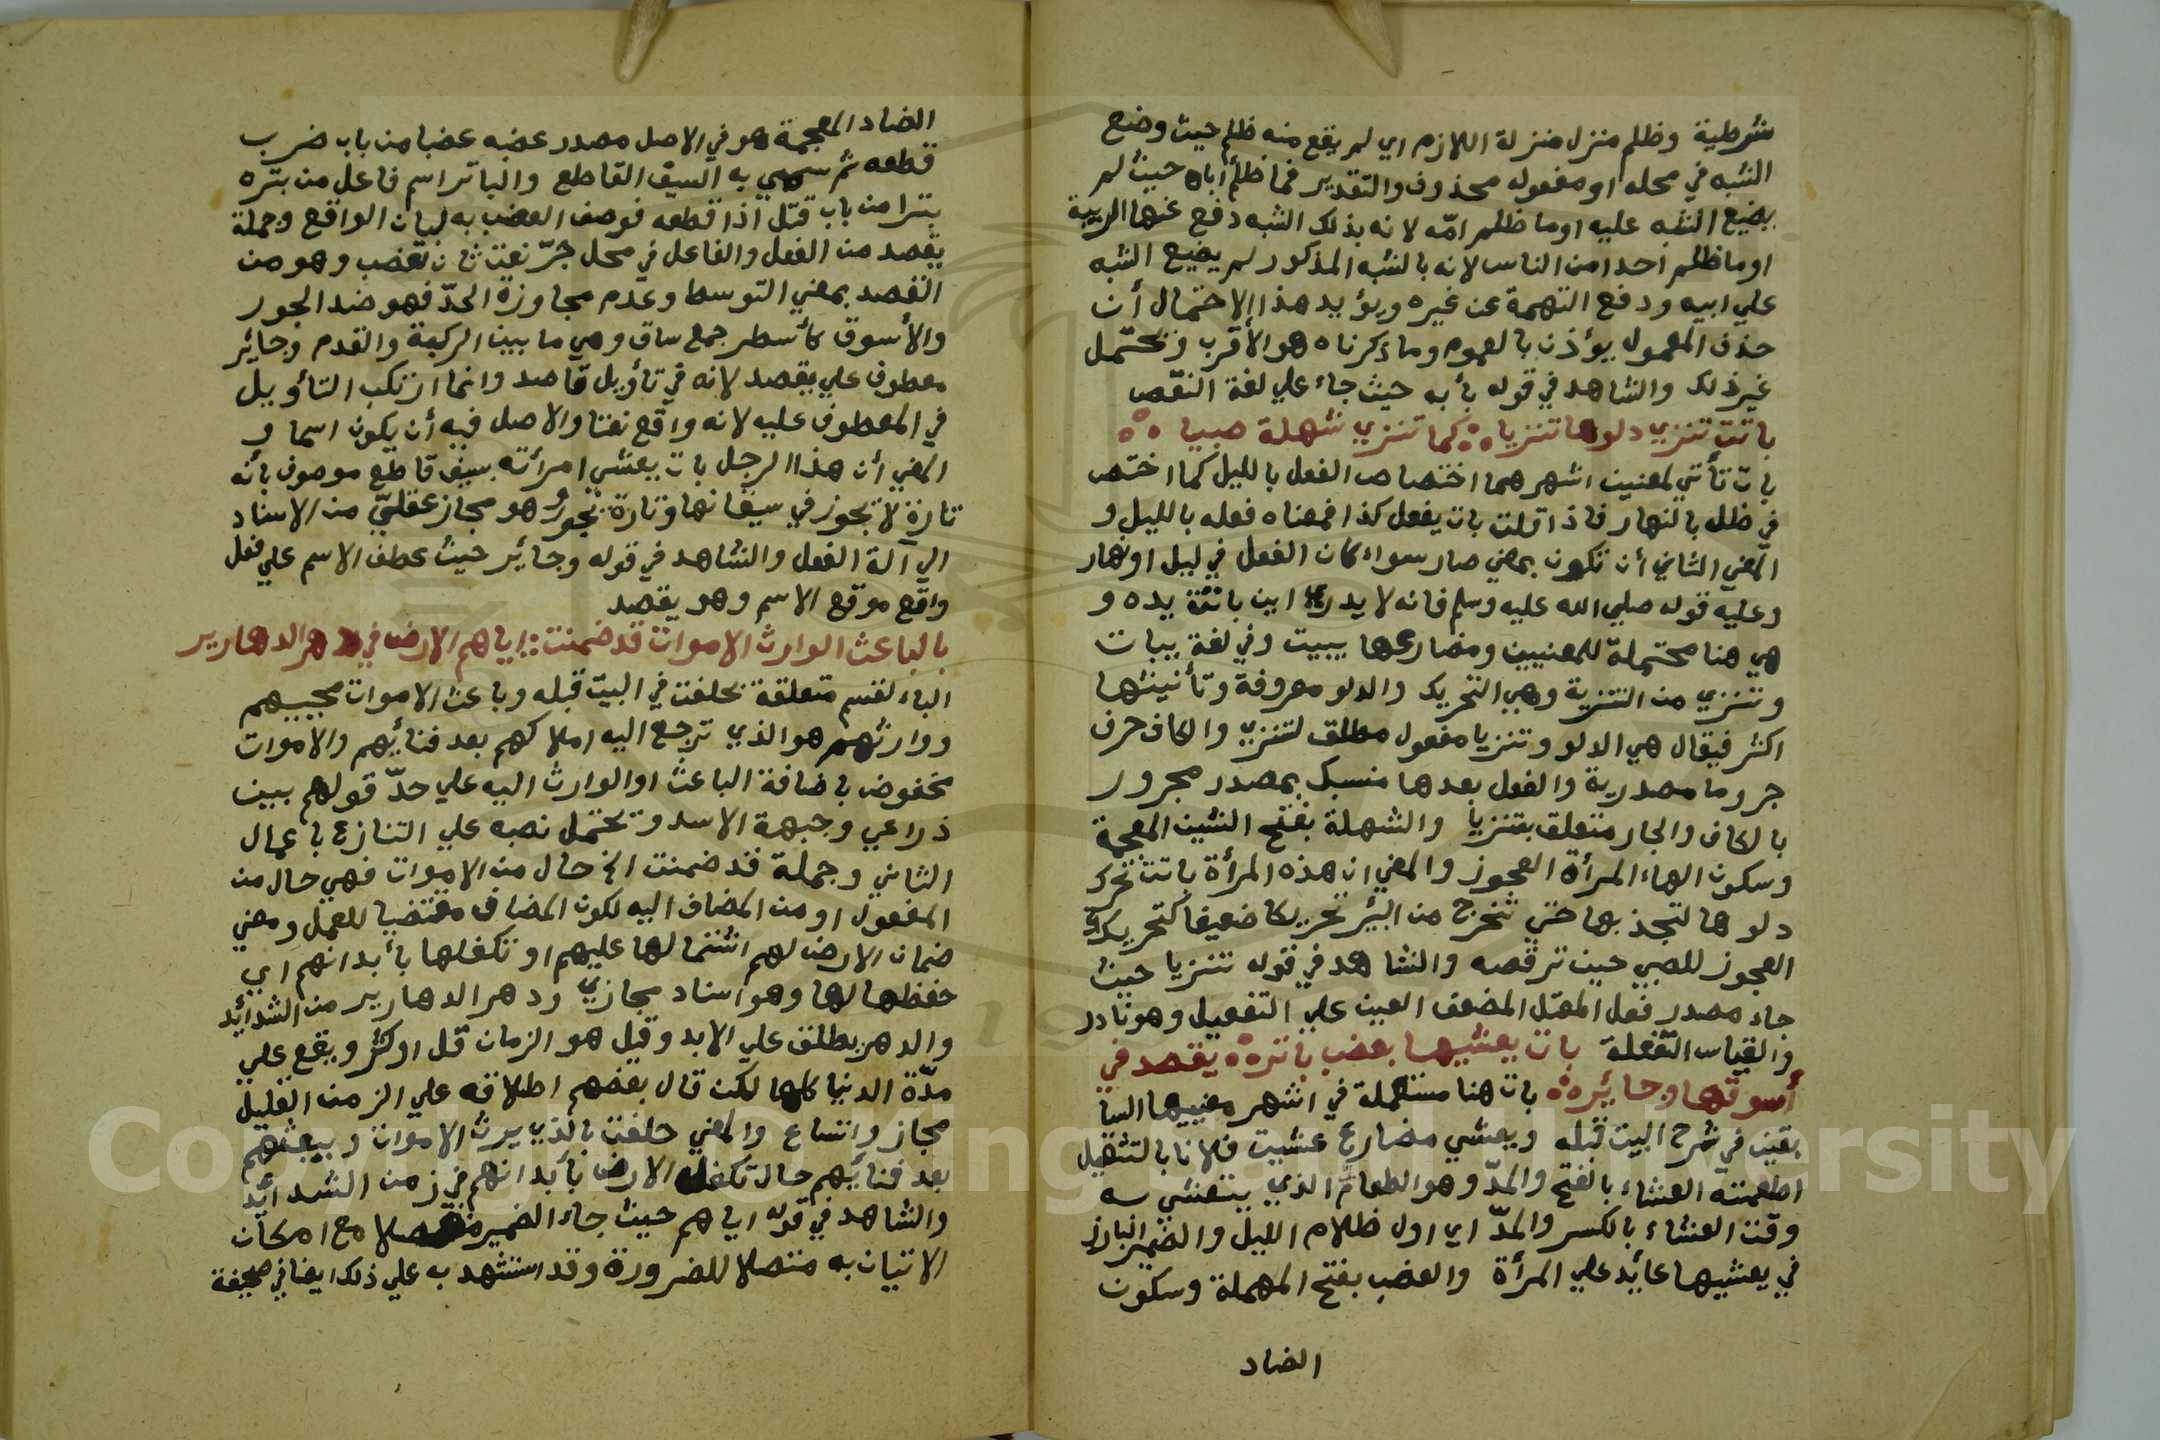 شرطية وظلم منزل منزلة اللازم اي لم يقع منه ظلم حيث وضع
الشبه في محله او مفعوله محذوف والتقدير فما ظلم أباه حيث لم
يضيع الشبه عليه او ما ظلم امّه لانه بذلك الشبه دفع عنها الريبة
او ما ظلم احدا من الناس لانه بالشبه المذكور لم يضيع الشبه
علي ابيه ودفع التهمة عن غيره ويؤيد هذا الاحتمال أن
حذف المعمول يؤذن بالعموم وما ذكرناه هو الأقرب ويحتمل
غير ذلك والشاهد في قوله بأبه حيث جاء علي لغة النقص
باتت تنزي دلوها تنزيا كما تنزي شهلة صبيا
بات تأتي لمعنيين اشهرهما اختصاص الفعل بالليل كما اختص
في ظل بالنهار فاذا قلت بات يفعل كذا فمعناه فعله بالليل و
المعني الثاني أن تكون بمعني صار سواء كان الفعل في ليل او نهار
وعليه قوله صلي الله عليه وسلم فانه لا يدري اين باتت يده و
هي هنا محتملة للمعنيين ومضارعها يبيت وفي لغة يبات
وتنزي من التنزية وهي التحريك والدلو معروفة وتأنيثها
اكثر فيقال هي الدلو وتنزيا مفعول مطلق لتنزي والكاف حرف
جر وما مصدرية والفعل بعدها منسبك بمصدر مجرور
بالكاف والجار متعلق بتنزيا والشهلة بفتح الشين المعجمة
وسكون الهاء المرأة العجوز والمعني ان هذه المرأة باتت تحرك
دلوها لتجذبها حتي تخرج من البئر تحريكا ضعيفا كتحريك
العجوز للصبي حين ترقصه والشاهد في قوله تنزيا حيث
جاء مصدر فعل المعتل المضعف العين علي التفعيل وهو نادر
والقياس التفعلة بات يعشيها بعضب باتره يقصد في
أسوقها وجائره بات هنا مستعملة في اشهر معنييها السا
بقين في شرح البيت قبله ويعشي مضارع عشيت فلانا بالتثقيل
اطعمته العشاء بالفتح والمدّ وهو الطعام الذي يتعشي به
وقت العشاء بالكسر والمدّ اي اول ظلام الليل والضمير البارز
في يعشيها عائد علي المرأة والعضب بفتح المهملة وسكون
الضاد
الضاد المعجمة هو في الاصل مصدر عضبه عضبا من باب ضرب
قطعه ثم سمي به السيف القاطع والباتر اسم فاعل من بتره
بترا من باب قتل اذا قطعه فوصف العضب به لبيان الواقع وجملة
يقصد من الفعل والفاعل في محل جرّ نعت ثان لعضب وهو من
القصد بمعني التوسط وعدم مجاوزة الحدّ فهو ضد الجور
والأسوق كأسطر جمع ساق وهي ما بين الركبة والقدم وجائر
معطوف علي يقصد لانه في تأويل قاصد وانما ارتكب التأويل
في المعطوف عليه لانه واقع نعتا والاصل فيه أن يكون اسما و
المعني أن هذا الرجل بات يعشي امرأته بسيف قاطع موصوف بأنه
تارة لا يجوز في سيقانها وتارة يجور وهو مجاز عقليّ من الاسناد
الي آلة الفعل والشاهد في قوله وجائر حيث عطف الاسم علي فعل
واقع موقع الاسم وهو يقصد
بالباعث الوارث الاموات قد ضمنت اياهم الارض في دهر الدهارير
الباء لقسم متعلقة بحلفت في البيت قبله وباعث الاموات محييهم
ووارثهم هو الذي ترجع اليه املاكهم بعد فنائهم والاموات
مخفوض باضافة الباعث او الوارث اليه علي حدّ قولهم بين
ذراعي وجبهة الاسد ويحتمل نصبه علي التنازع باعمال
الثاني وجملة قد ضمنت الخ حال من الاموات فهي حال من
المفعول او من المضاف اليه لكون المضاف مقتضيا للعمل ومعني
ضمان الارض لهم اشتمالها عليهم او تكفلها بأبدانهم اي
حفظها لها وهو اسناد مجازي ودهر الدهارير من الشدائد
والدهر يطلق علي الابد وقيل هو الزمان قل او كثر ويقع علي
مدّة الدنيا كلها لكن قال بعضهم اطلاقه علي الزمن القليل
مجاز واتساع والمعني حلفت بالذي يرث الاموات ويبعثهم
بعد فنائهم حال تكفل الارض بأبدانهم في زمن الشدائد
والشاهد في قوله اياهم حيث جاء الضمير منفصلا مع امكان
الاتيان به متصلا للضرورة وقد استشهد به علي ذلك ايضا في صحيفة
Copyright © King Saud University